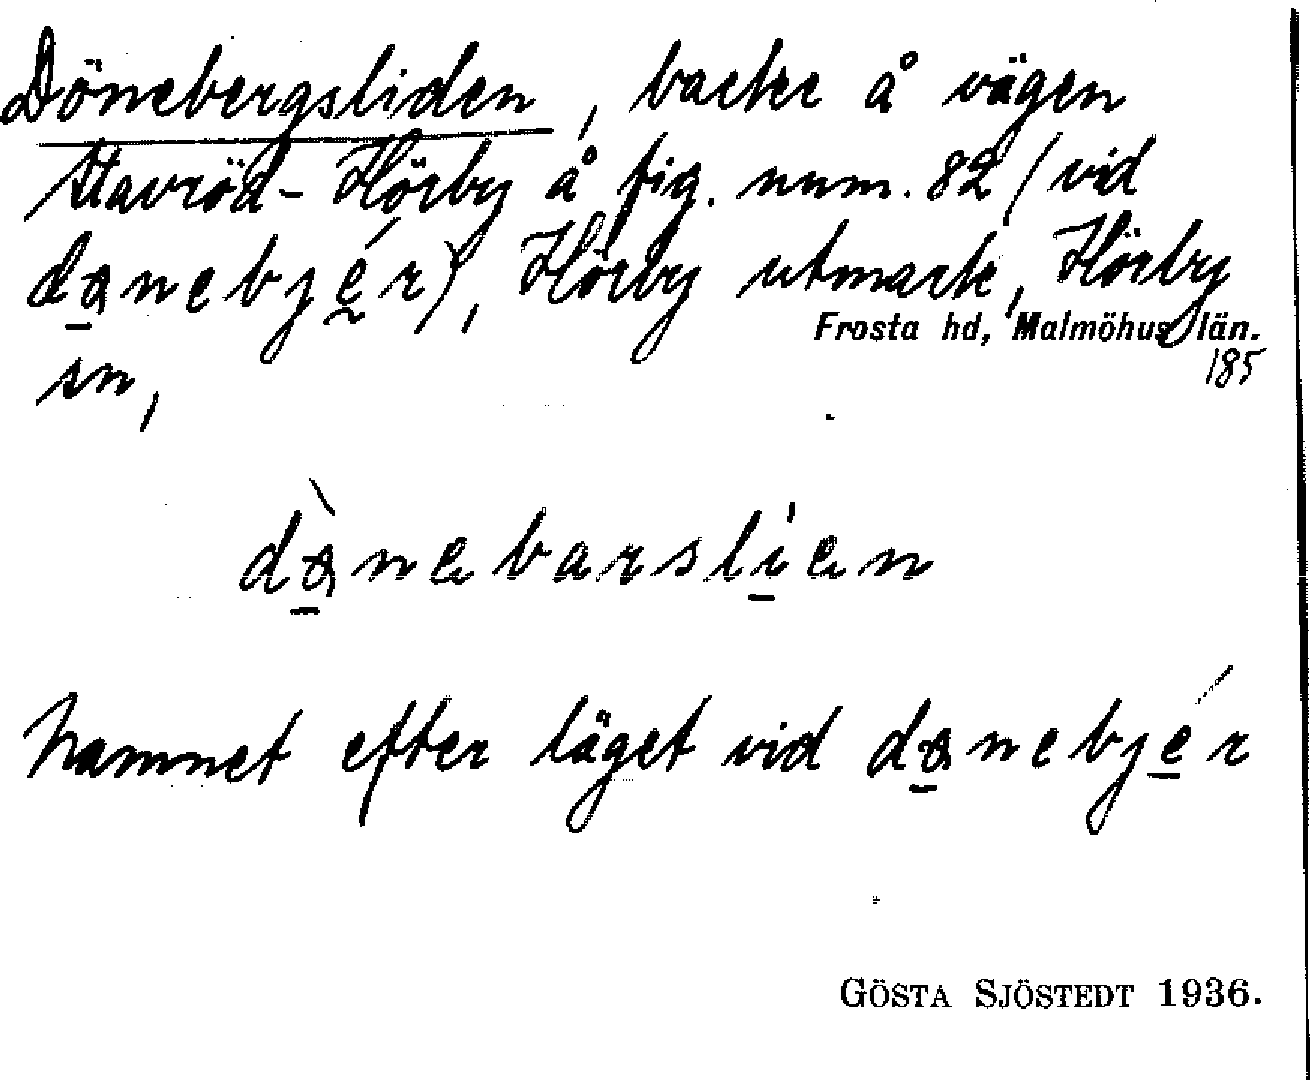 Dönebergsliden, backe å vägen
Stavröd - Hörby å fig. num. 82 (vid
dɷnebjér), Hörby utmark, Hörby
Frosta hd, Malmöhus län.
185
sn,
dɷ̀nebarslien
Namnet efter läget vid dɷnebjér
GÖSTA SJÖSTEDT 1936.